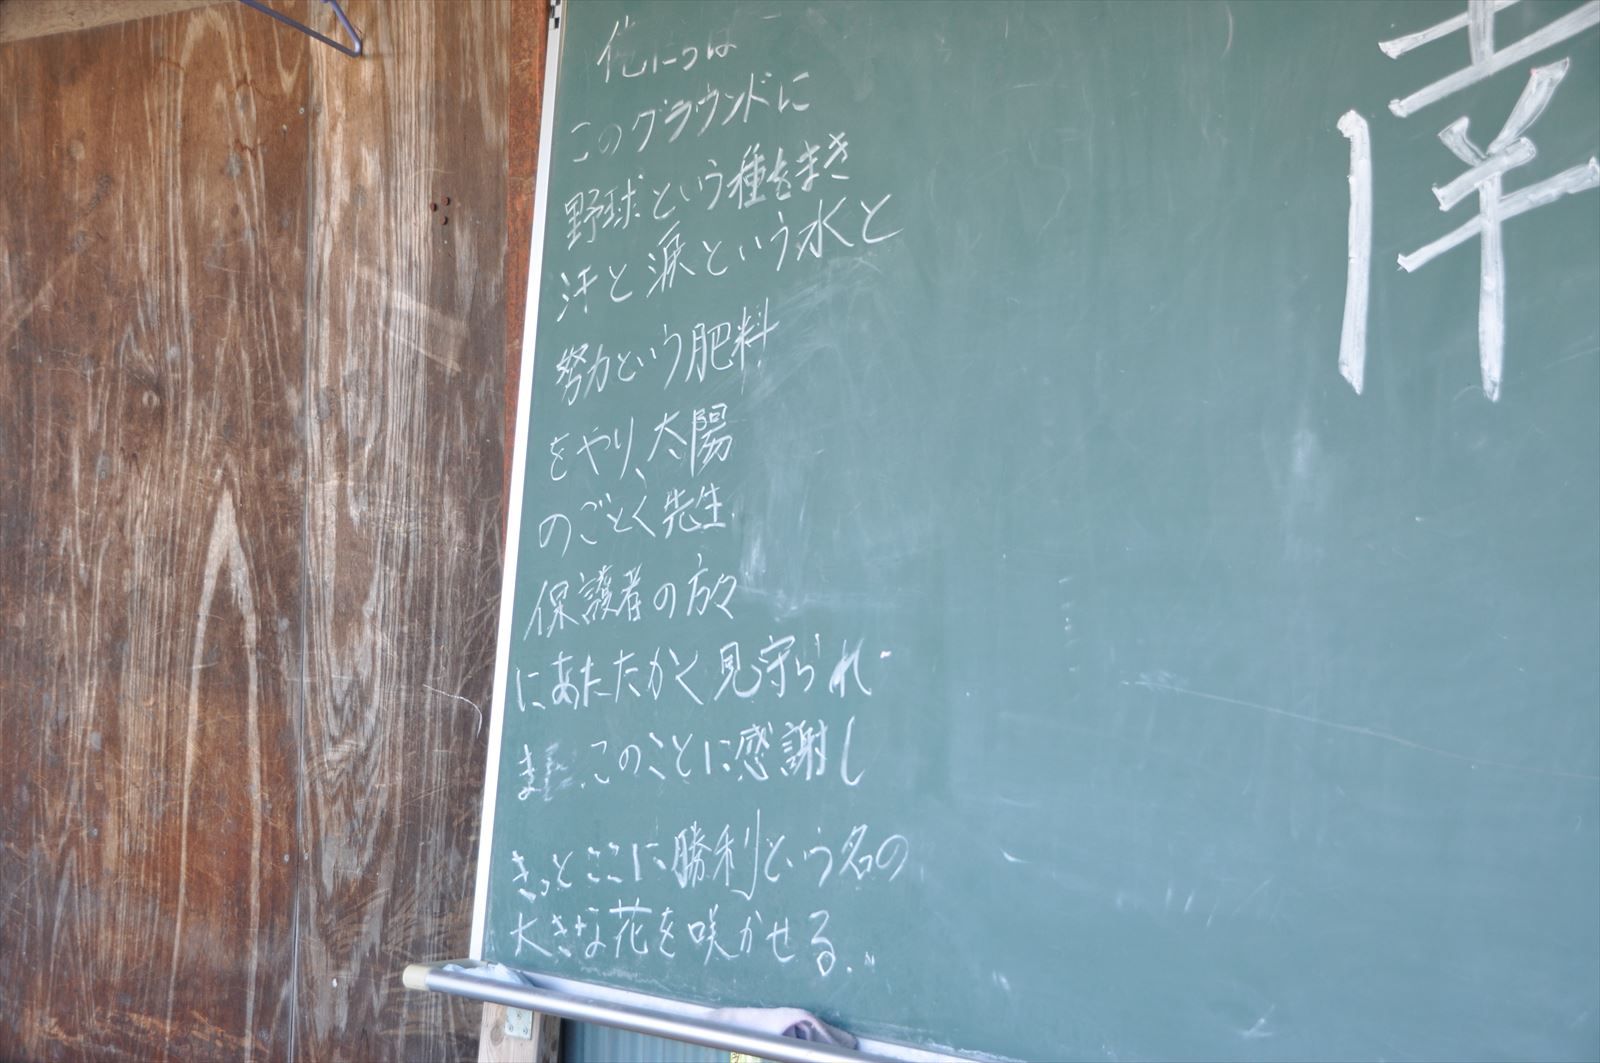 俺たちは
このグラウンドに
野球という種をまき
汗と涙という水と
努力という肥料
をやり、太陽
のごとく先生
保護者の方々
にあたたかく見守られ
このことに感謝し
きっとここに勝利という名の
大きな花を咲かせる。